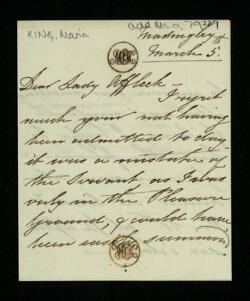 KING, Maria
Add Ms. a.
Madingley
March 5.
Dear Lady Affleck –
I regret
much your not having
been admitted to day
it was a mistake of
the Servant as I was
only in the Pleasure
Ground, & could have
been easily summon'd